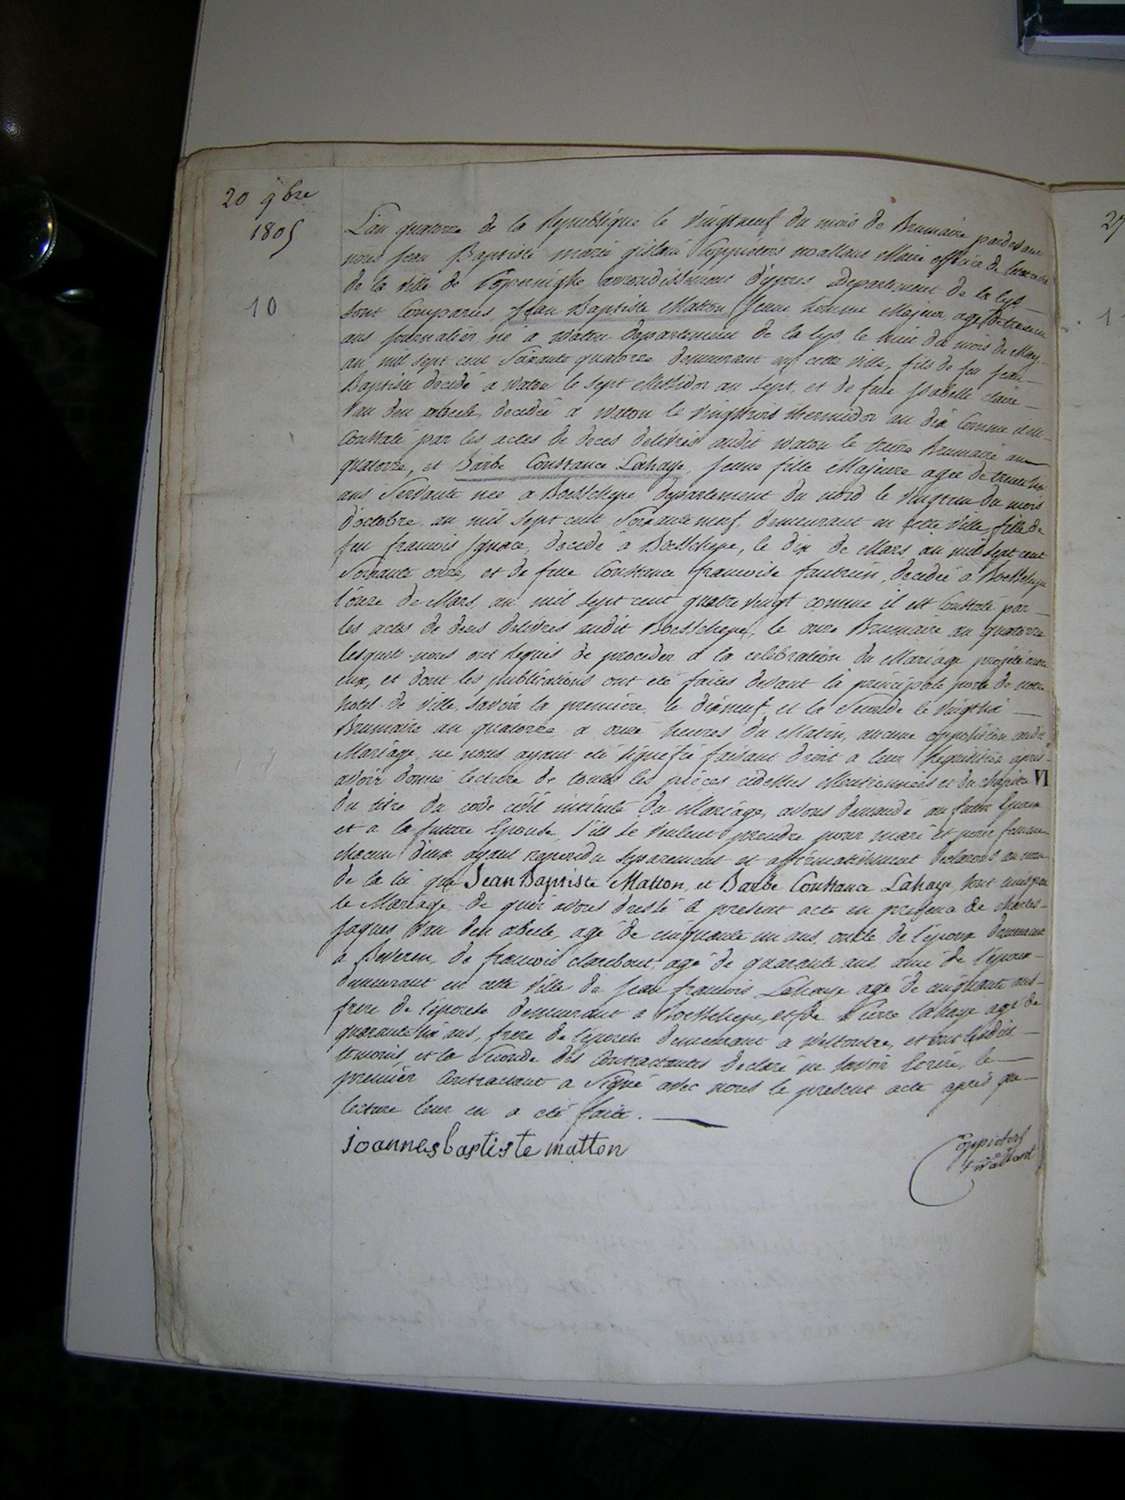 20 9bre
1805
10
L'an quatorze de la Republique le vingtneuf du mois de Brumaire pardevant
nous Jean Baptiste marie gislain Coppieters wallant Maire officier de
de la ville de Poperinghe arrondissement d'ypres Departement de la lys
sont Comparus Jean Baptiste Matton Jeune homme Majeur agé de trente un
ans journalier né a watou Departement de la lys le huit du mois de May
an mil sept cent Soixante quatorze demeurant en cette ville, fils de feu Jean
Baptiste decedé a watou le sept Messidor an sept, et de feue Isabelle claire
Van den abeele, decedée a watou le vingttrois thermidor an dix Comme
Constaté par les actes de deces delivrés audit watou le treize Brumaire an
quatorze, et Barbe Constance Lahaye, Jeune fille Majeure agée de trente six
ans Servante née a Boeschepe Departement du nord le vingtun du mois
d'octobre an mil sept cent Soixante neuf, demeurant en cette ville, fille de
feu francois Ignace, decedé a Boeschepe, le dix de Mars an mil sept cent
Soixante onze, et de feue Constance francoise, decedée a Boeschepe
l'onze de Mars an mil sept cent quatre vingt comme il est Constaté par
les actes de deces delivrés audit Boeschepe, le onze Brumaire an quatorze
lesquels nous ont requis de proceder a la celebration du Mariage projetté entre
eux, et dont les publications ont eté faites devant la principale porte de notre
hotel de ville, savoir la premiere, le dixneuf et la Seconde le vingtsix
Brumaire an quatorze a onze heures du Matin, aucune opposition audit
Mariage ne nous ayant eté signifiée faisant droit a leur requisition apres
avoir donné lecture de toutes les pièces cidessus Mentionnées et du chapitre VI
du titre du code civil intitulé du Mariage, avons demandé au futur Epoux
et a la future Epouse, s'ils se veulent prendre pour mari et pour femme
chacun d'eux ayant repondu separement et affirmativement declarons au nom
de la loi que Jean Baptiste Matton, et Barbe Constance Lahaye, sont unis par
le Mariage de quoi avons dressé le present acte en presence de Charles
Jaques Van den abeele, agé de cinquante un ans, oncle de l'epoux demeurant
a Beveren, de francois clarebout agé de quarante ans ami de l'epoux
demeurant en cette ville de Jean francois Lahaye agé de cinquante ans
frere de l'epouse demeurant a Boeschepe, et de Pierre Lahaye agé de
quarante six ans, frere de l'epouse demeurant a westoutre, et ont lesdits
temoins et la Seconde des Contractants declaré ne savoir Ecrire, le
premier Contractant a Signé avec nous le present acte après que
lecture leur en a eté faite.
joannes baptiste matton
Coppieters
wallant